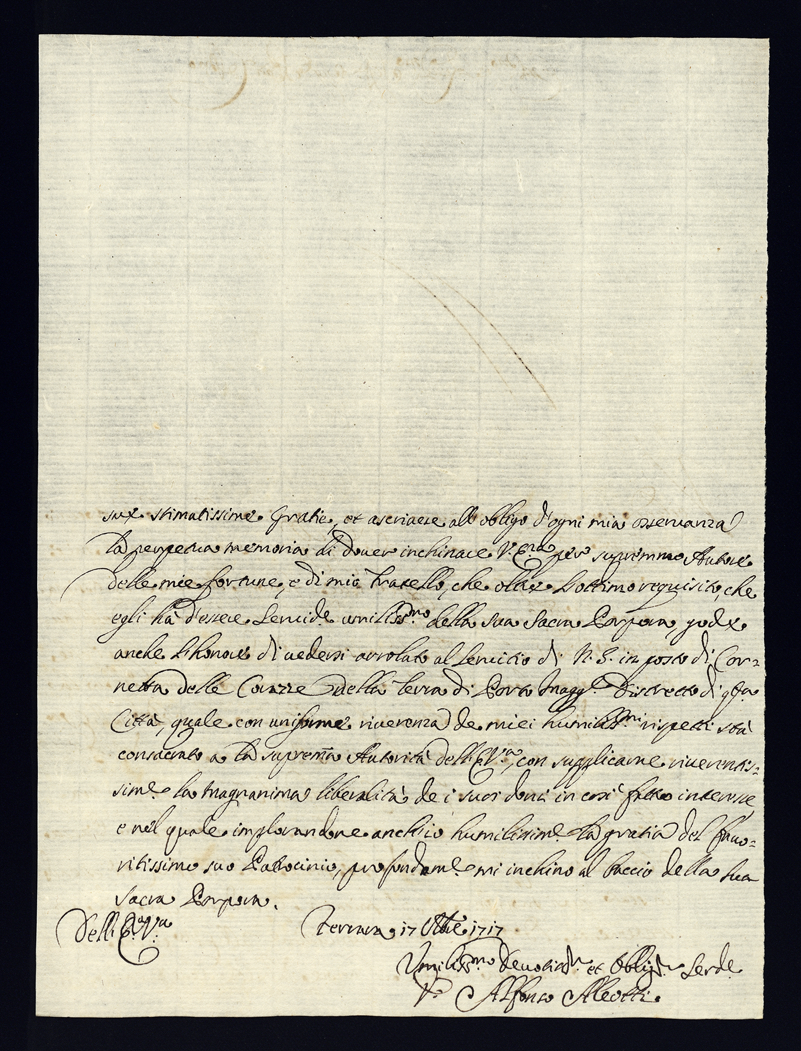 sue stimatissime Gratie, et ascriuere all obligo d'ogni mia osseruanza
la perpetua memoria di douer inchinare V. Em.za per supremmo Autore
delle mie fortune, e di mio fratello, che oltre l'ottimo requisito, che
egli hà d'essere Seruid.e umiliss.mo della sua Sacra Porpora, gode
anche l'honore di uedersi arrolato al Seruitio di N. S. in posto di Cor=
netta delle Corazze della Terra di Porto Magg.e Distretto di q.sta
Città, quale con uniforme riuerenza de miei humiliss.mi rispetti stà
consacrato a la suprema Autorità dell E. V.a, con supplicarne riuerentis=
sim.e la magnanima liberalità de i suoi doni in così fatto interesse
e nel quale implorandone anch'io humilissim.e la gratia del fauo=
ritissimo suo Patrocinio, profondam.e mi inchino al baccio della sua
Sacra Porpora.
Dell E.a V.a
Ferrara 17 1717
Umiliss.mo Deuotis.o et Oblig.o Serd.e
Alfonso Aleotti.